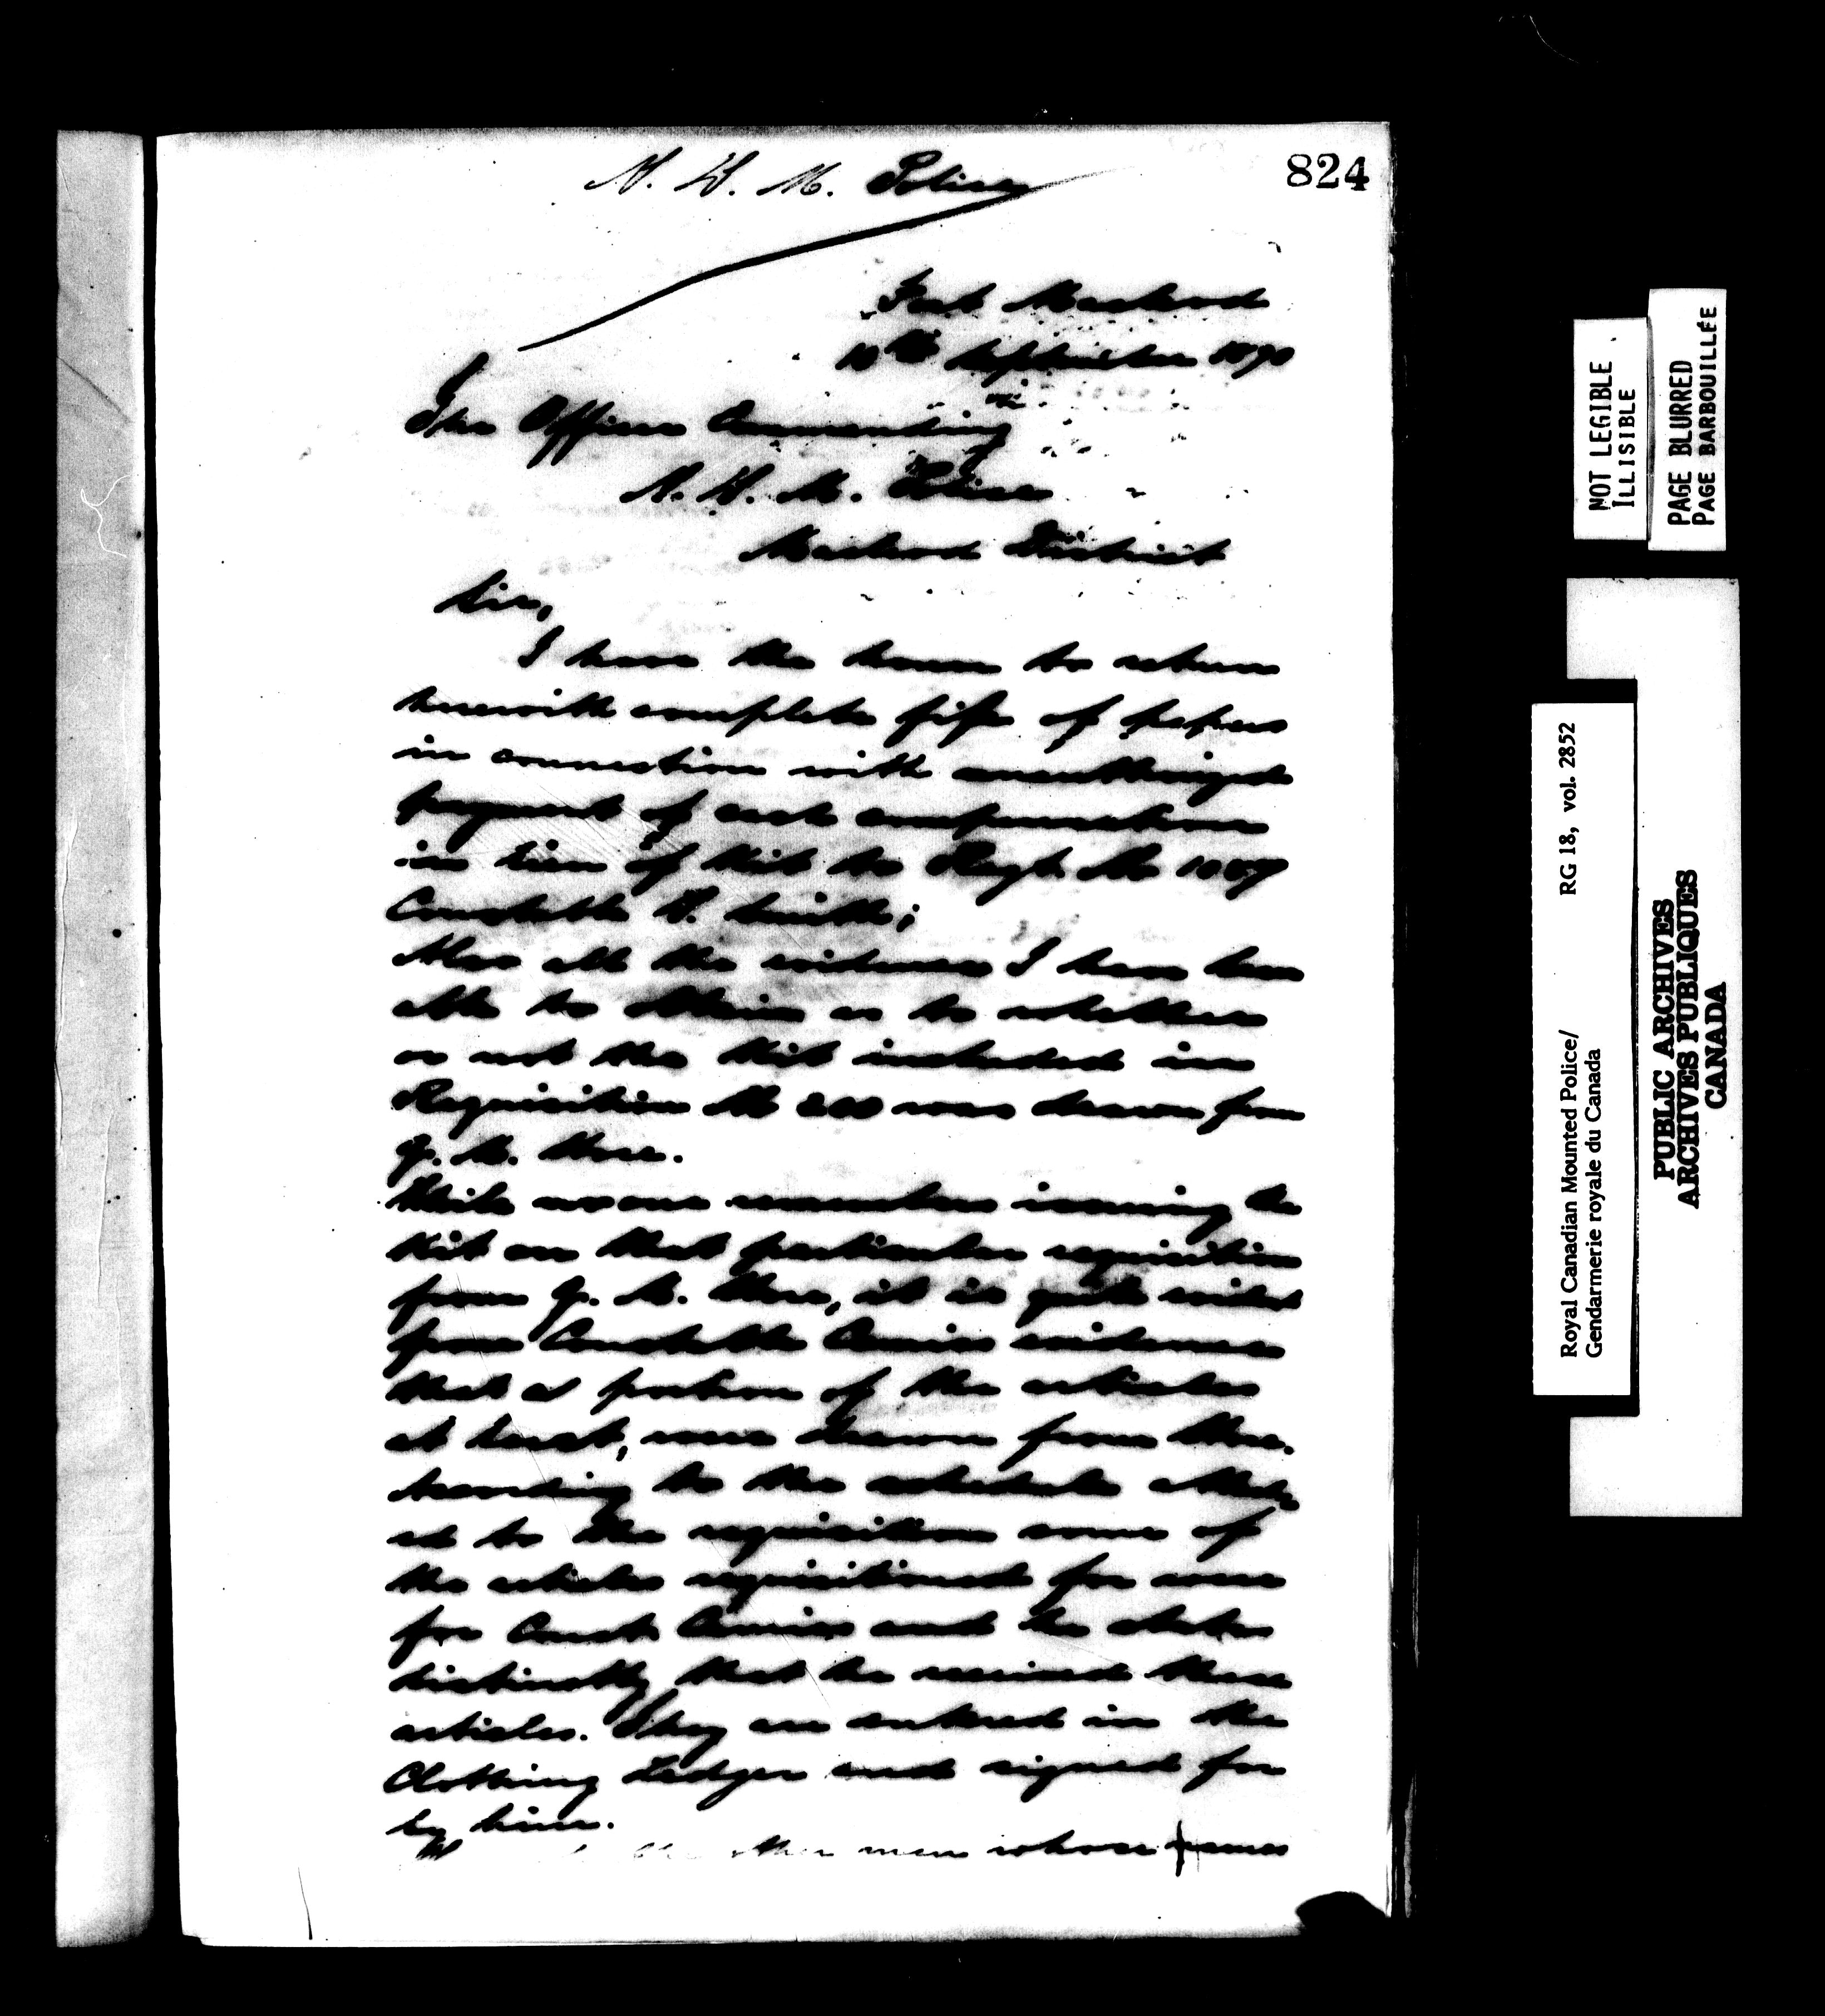 824
N. W. M. Police
Fort Macleod
10th September 1890
The Officer Commanding
N. W. M. Police
Macleod District
Sir,
I have the honor to return
herewith complete file of papers
in connection with unauthorized
payment of cash compensation
in lieu of kit to Regt. No
Constable Smith;
also all the evidence I have been
able to obtain as to whether
or not the kit included in
Requisition No was drawn from
Q. M. Store.
While no one remembers issuing the
kit on that particular requisition
from Q. M. Store, it is quite evident
from Constable evidence
that a portion of the articles
at least, were drawn from Store.
According to the schedule attach
ed to the requisition some of
the articles requisitioned for were
for Const. and he states
distinctly that he received these
articles. They are entered in the
Clothing Ledger and signed for
by him.
the other men whose names
NOT LEGIBLE
ILLISIBLE
PAGE BLURRED
PAGE BARBOUILLÉE
Royal Canadian Mounted Police/ RG 18, vol. 2852
Gendarmerie royale du Canada
PUBLIC ARCHIVES
ARCHIVES PUBLIQUES
CANADA